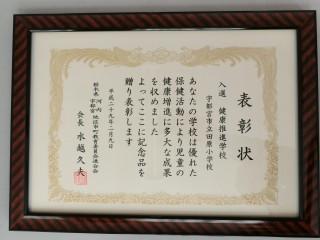 表彰状
入選 健康推進学校
宇都宮市立田原小学校
あなたの学校は優れた
保健活動により児童の
健康増進に多大な成果
を収めました
よってここに記念品を
贈り表彰します
平成二十九年二月九日
栃木県 河内 宇都宮 地区市町教育委員会連合会
会長 水越久夫